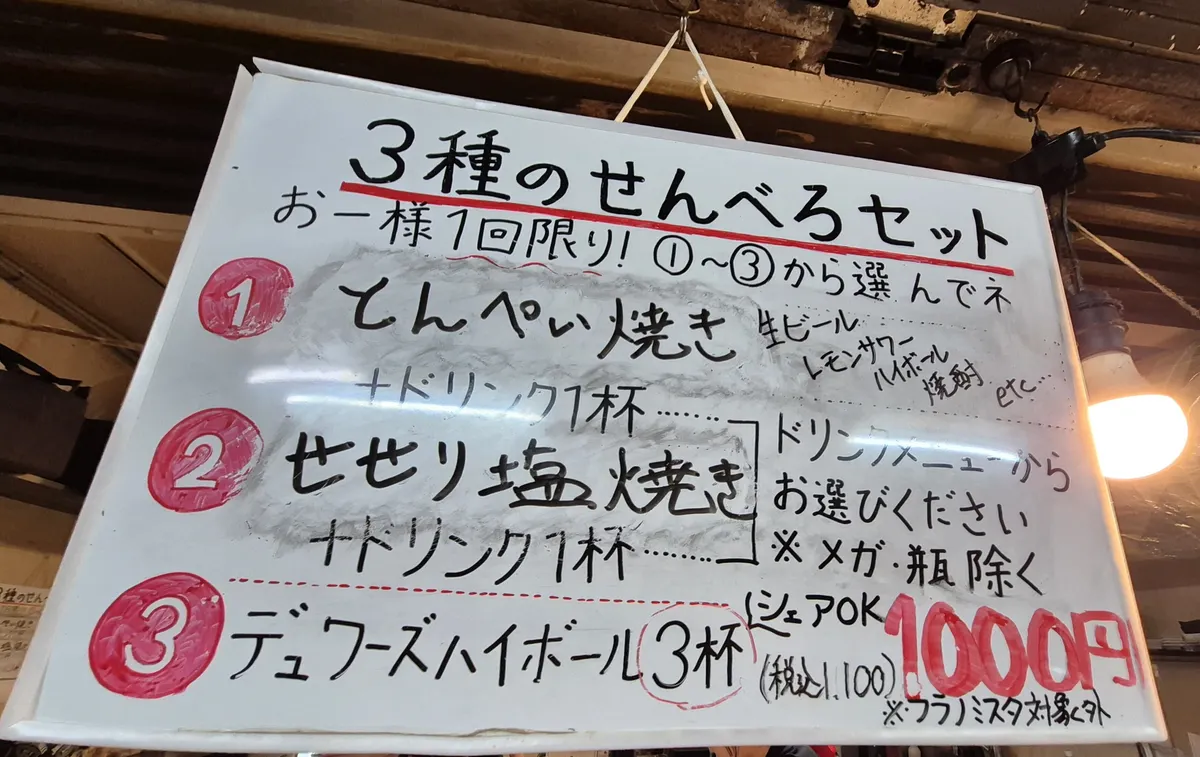 3種のせんべろセット
お一様1回限り! ①~③から選んでネ
1 とんぺい焼き
生ビール
レモンサワー
ハイボール
焼酎 etc…
+ドリンク1杯……
2 せせり塩焼き
+ドリンク1杯……
ドリンクメニューから
お選びください
※メガ・瓶除く
3 デュワーズハイボール3杯
シェアOK
(税込1,100)
1000円
※フラノミスタ対象外